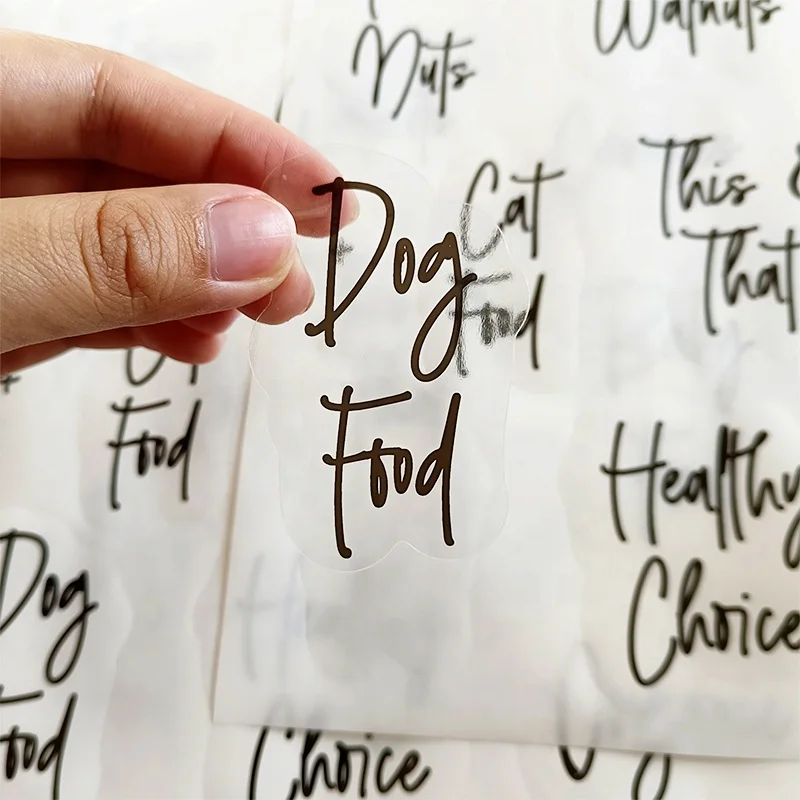 Nuts
Walnuts
Dog
Food
Cat
Food
This &
That
Food
Healthy
Choice
Dog
Food
Choice